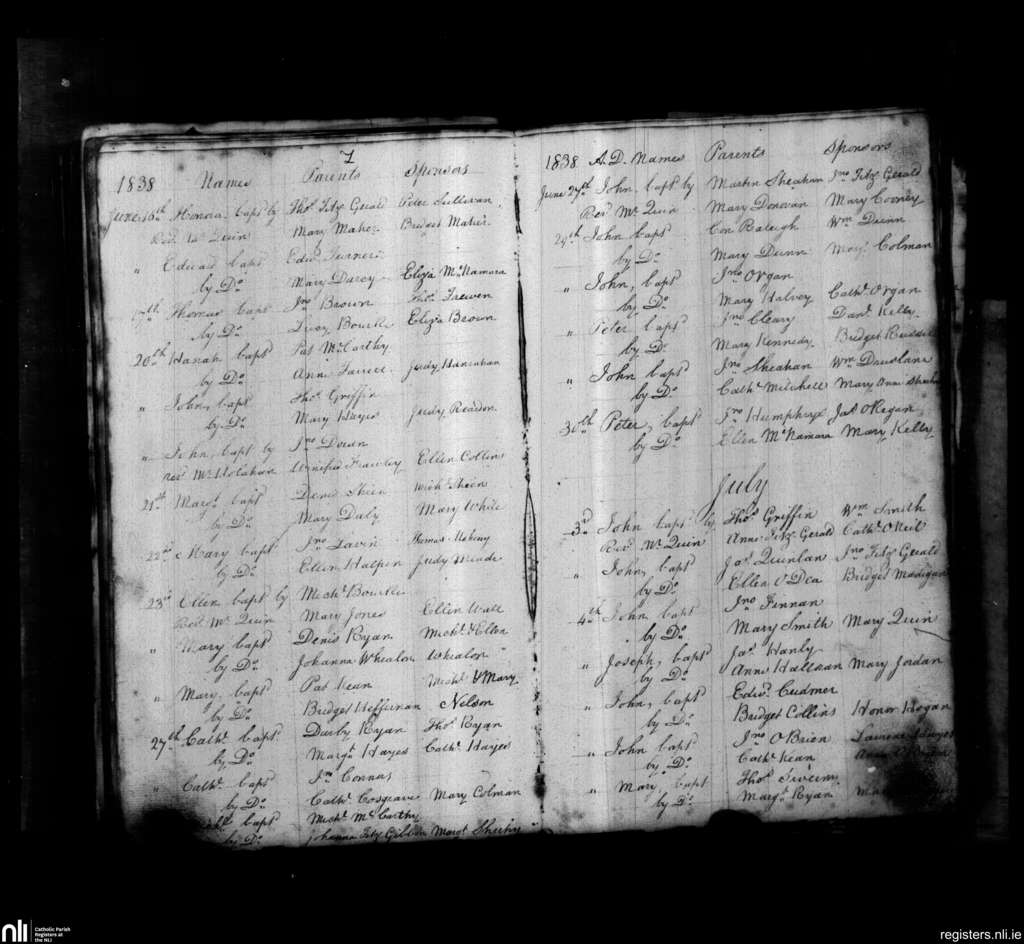 7
1838 Names Parents Sponsors
June 16th Honora bapt by Thos Fitz Gerald Peter Sullivan
Revd Mr Quin Mary Maher Bridget Maher
" Edward bapt Edwd
by Do Mary Darcy Eliza McNamara
Thomas bapt Jno Brown Thos
by Do Lucy Bourke Eliza Brown
20th Hanah bapt Pat McCarthy
by Do Anne Judy Hanrahan
" John, bapt Thos Griffin
by Do Mary Hayes Judy Reardon
" John, bapt by Jno Down
revd Mr Holahan Frawley Ellen Collins
21st Margt bapt Denis Shein Michl Shein
by Do Mary Daly Mary White
22nd Mary bapt Jno Lavin Thomas
by Do Ellen Halpin Judy Meade
23rd Ellen bapt by Michl Bourke
Revd Mr Quin Mary Jones Ellen Wall
" Mary bapt Denis Ryan Michl & Ellen
by Do Johanna Whealon Whealon
" Mary, bapt Pat Kean Michl & Mary
by Do Bridget Heffernan Nelson
27th Cathe bapt Darby Ryan Thos Ryan
by Do Margt Hayes Cathe Hayes
" Cathe bapt Jno Connors
by Do Cathe Cosgrave Mary Colman
bapt Michl McCarthy
by Do Johanna Fitz Gibbon Margt Sheehy
1838 A.D. Names Parents Sponsors
June 27th John, bapt by Martin Sheahan Jno Fitz Gerald
Revd Mr Quin Mary Donovan Mary Cooney
John bapt Con Raleigh Wm Dunn
by Do Mary Dunn Mary Colman
" John, bapt Jno Organ
by Do Mary Halvey Cathe Organ
" Peter bapt Jno Cleary Danl Kelly
by Do Mary Kennedy Bridget
" John bapt Jno Sheahan Wm
by Do Cathe Mitchell Mary Anne
30th Peter, bapt Jno Humphrys Jas O'Regan
by Do Ellen McNamara Mary Kelly
July
3rd John bapt by Thos Griffin Wm Smith
Revd Mr Quin Anne Fitz Gerald Cathe O'Neil
" John, bapt Jas Quinlan Jno Fitz Gerald
by Do Ellen O'Dea Bridget Madigan
4th John, bapt Jno Finnan
by Do Mary Smith Mary Quin
" Joseph, bapt Jas Hanly
by Do Anne Hallinan Mary Jordan
" John, bapt Edwd Cudmer
by Do Bridget Collins Honor Hogan
" John bapt Jno O'Brien
by Do Cathe Kean
" Mary, bapt Thos
by Do Margt Ryan
nli Catholic Parish
Registers at
the NLI
registers.nli.ie